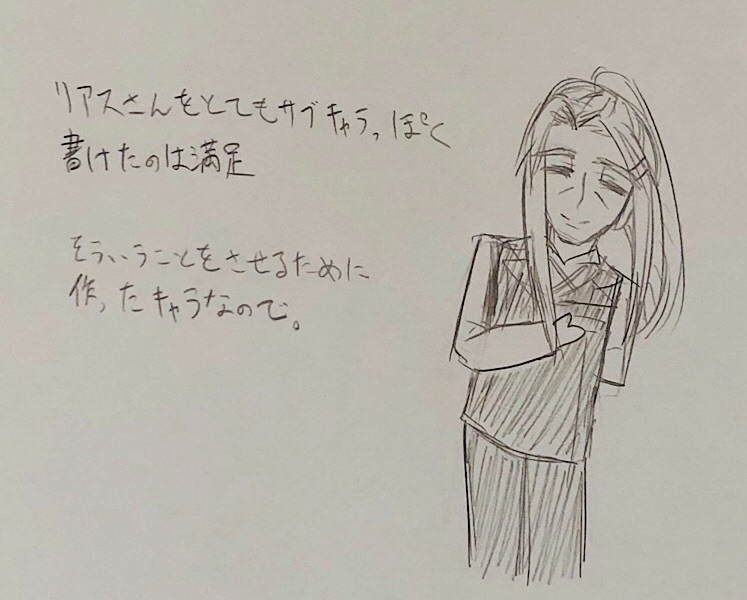 リアスさんをとてもサブキャラっぽく
書けたのは満足
そういうことをさせるために
作ったキャラなので。